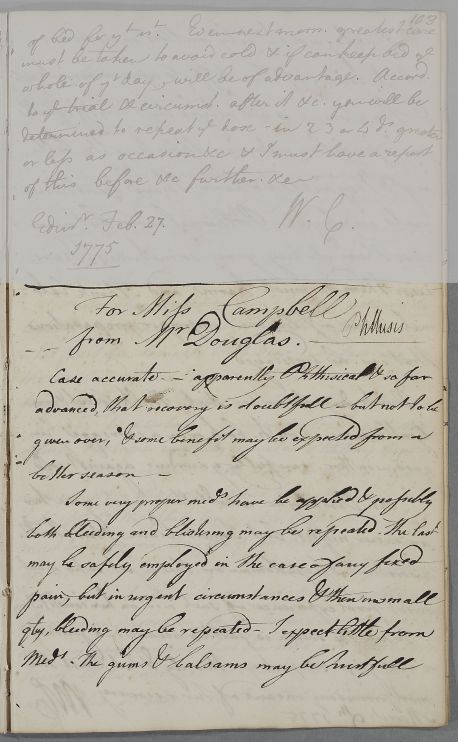 103
of bed for yt nt. Even next morn. greatest care
must be taken to avoid cold & if can keep bed ye
whole of yt day, will be of advantage. Accord.
to ye trial & circumst. after it &c. you will be
determined to repeat ye dose - in 2 3 or 4 ds. greater
or less as occasion &c & I must have a report
of this before &c further. &c
W. C.
Edinr. Feb. 27.
1775
For Miss Campbell
from Mr Douglas. Phthisis
Case accurate - apparently Phthisical & so far
advanced, that recovery is doubtfull - but not to be
given over, & some benefit may be expected from a
better season -
Some very proper meds have be applied & possibly
both bleeding and blistering may be repeated. the last
may be safely employed in the case of any fixed
pain, but in urgent circumstances & then in small
qty, bleeding may be repeated - I expect little from
Meds. The gums & balsams may be hurtfull